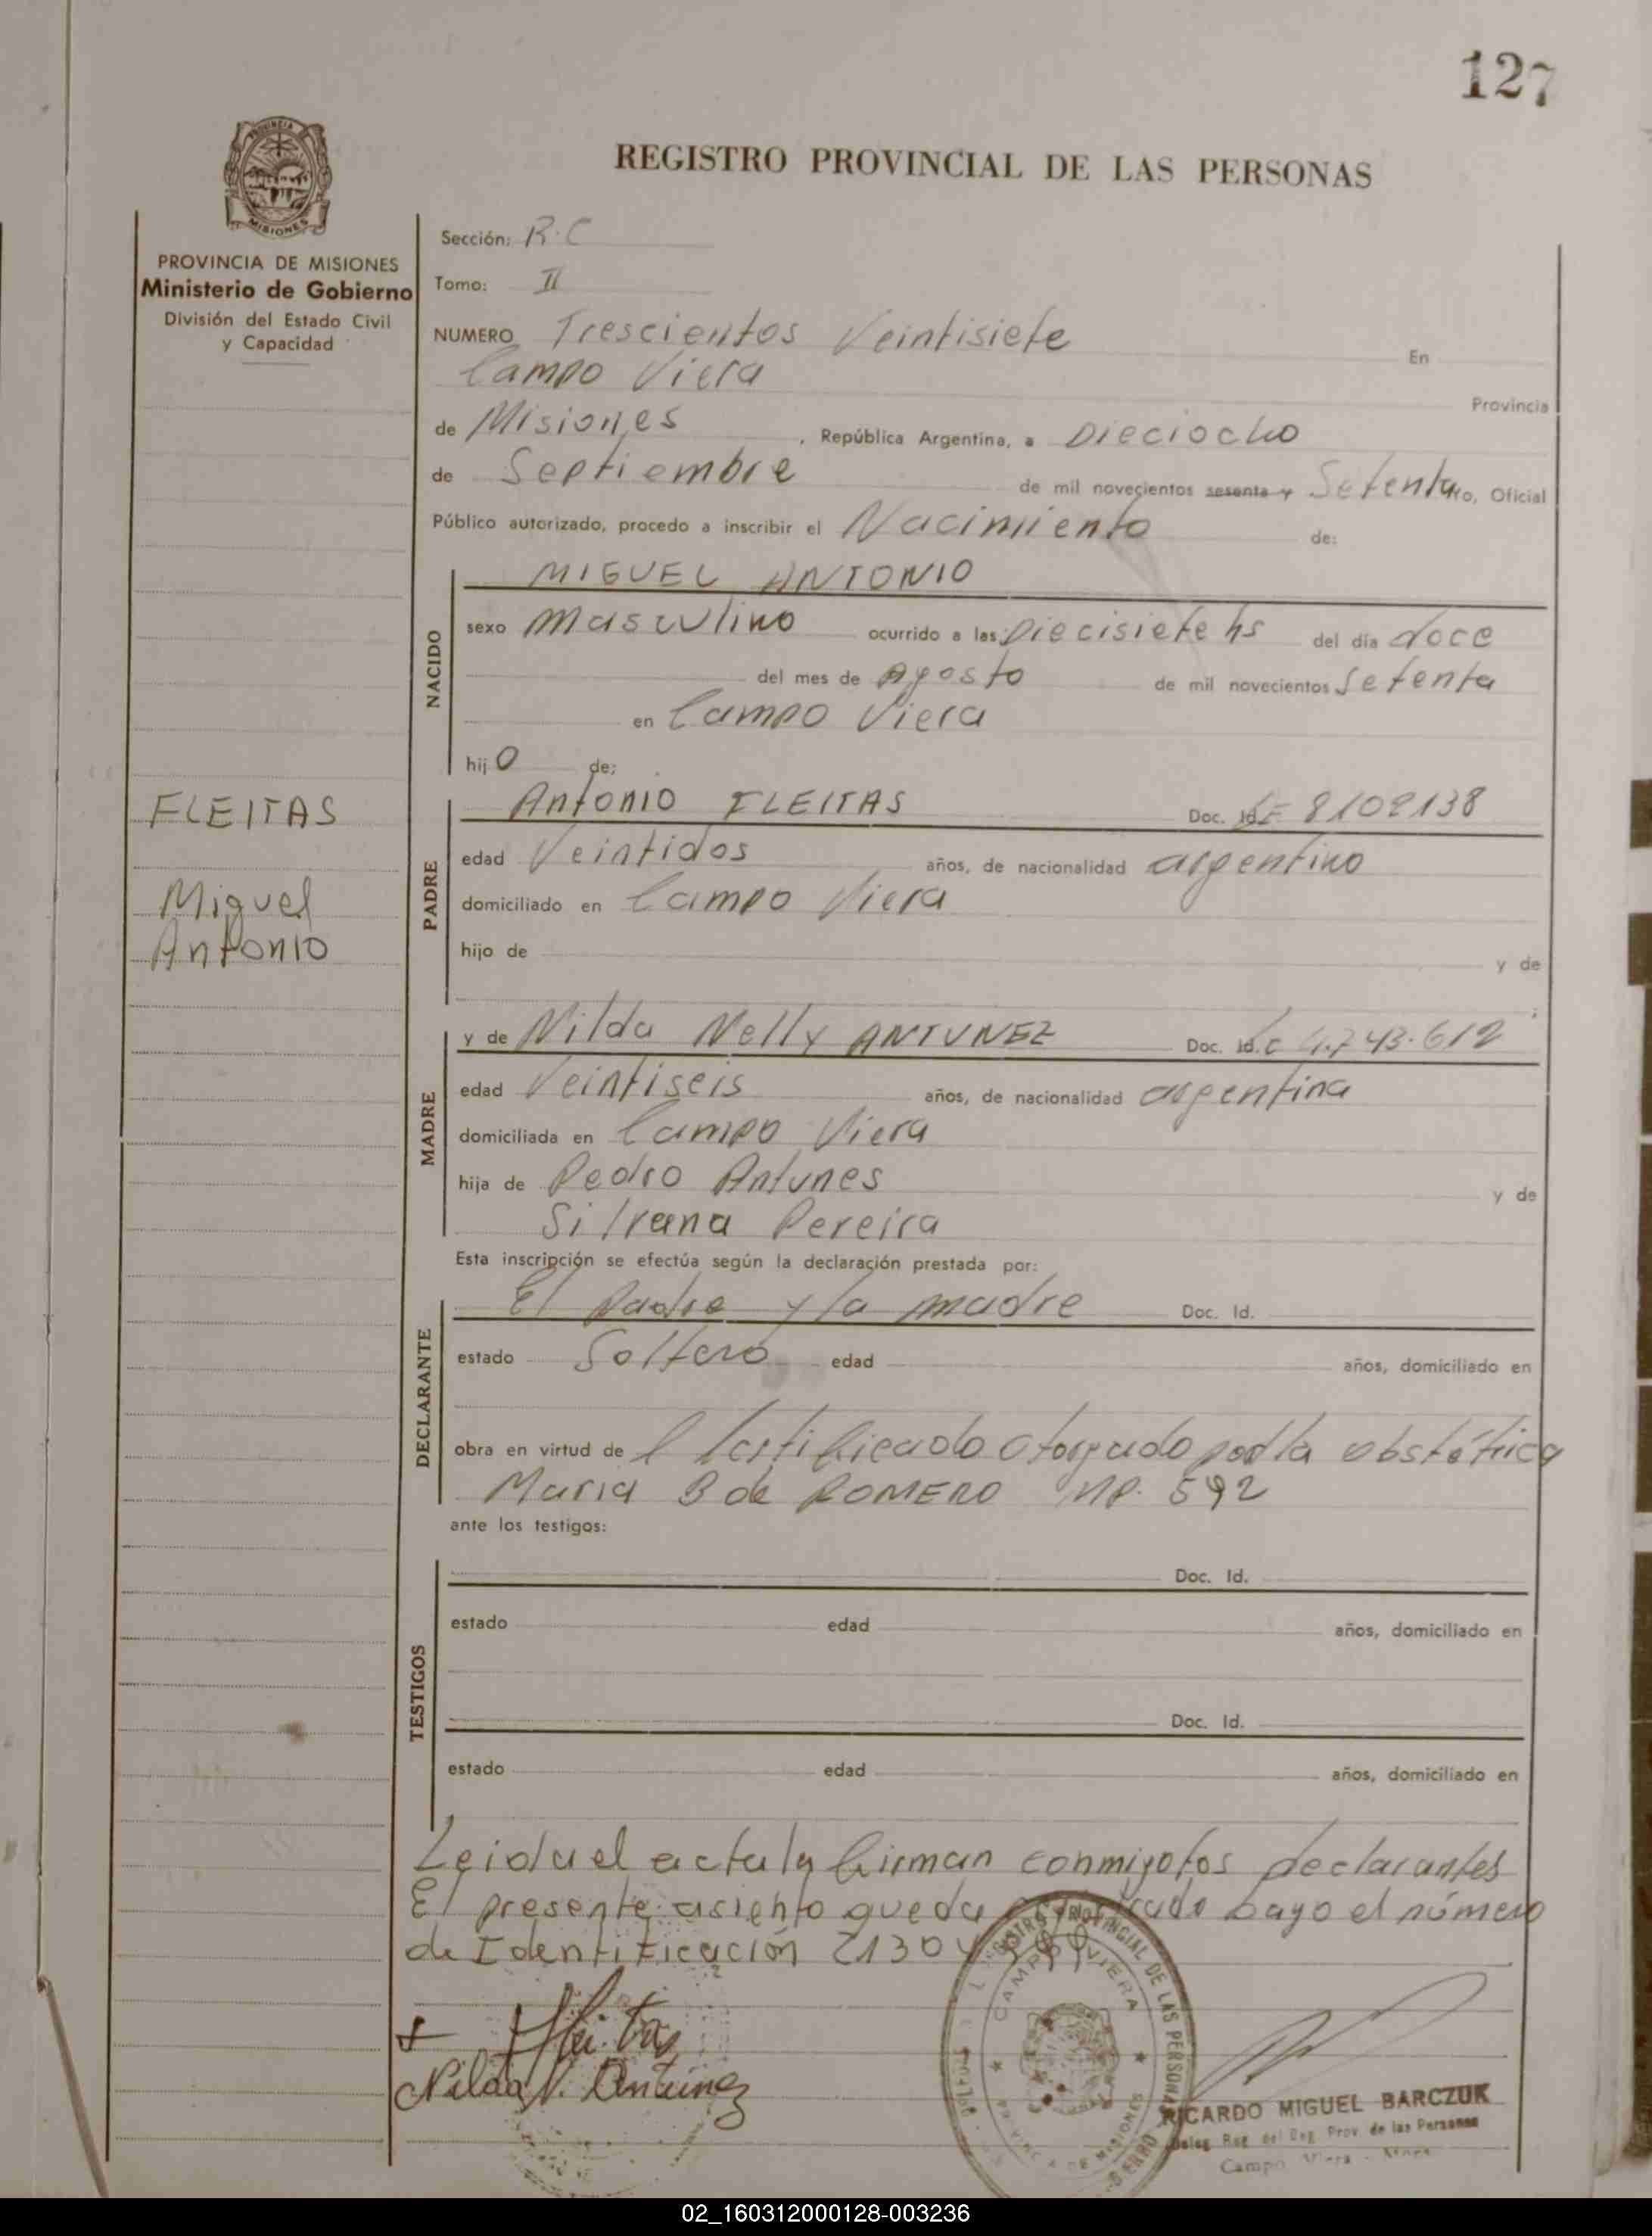 127
REGISTRO PROVINCIAL DE LAS PERSONAS
PROVINCIA DE
MISIONES
PROVINCIA DE MISIONES
Ministerio de Gobierno
División del Estado Civil
y Capacidad
Sección: R.C
Tomo: II
NUMERO Trescientos Veintisiete En
Campo Viera Provincia
de Misiones, República Argentina, a Dieciocho
de Septiembre de mil novecientos sesenta y Setenta yo, Oficial
Público autorizado, procedo a inscribir el Nacimiento de:
NACIDO
MIGUEL ANTONIO
sexo Masculino ocurrido a las Diecisiete hs del día doce
del mes de Agosto de mil novecientos Setenta
en Campo Viera
hijo de:
FLEITAS
Miguel
Antonio
PADRE
Antonio FLEITAS Doc. Id. LE 8102138
edad Veintidos años, de nacionalidad argentino
domiciliado en Campo Viera
hijo de y de
MADRE
y de Nilda Nelly ANTUNEZ Doc. Id. LC 4.743.612
edad Veintiseis años, de nacionalidad argentina
domiciliada en Campo Viera
hija de Pedro Antunes y de
Silvana Pereira
Esta inscripción se efectúa según la declaración prestada por:
DECLARANTE
El Padre y la madre Doc. Id.
estado Soltero edad años, domiciliado en
obra en virtud del Certificado otorgado por la obstétrica
Maria B de ROMERO MP. 592
ante los testigos:
TESTIGOS
Doc. Id.
estado edad años, domiciliado en
Doc. Id.
estado edad años, domiciliado en
Leida el acta la firman conmigo los declarantes
El presente asiento queda bajo el número
de Identificación 21304
Fleitas
Nilda N. Antunez
REGISTRO PROVINCIAL DE LAS PERSONAS
CAMPO VIERA
MISIONES
RICARDO MIGUEL BARCZUK
Deleg. Reg. del Reg. Prov. de las Personas
Campo Viera - Mnes.
02_160312000128-003236